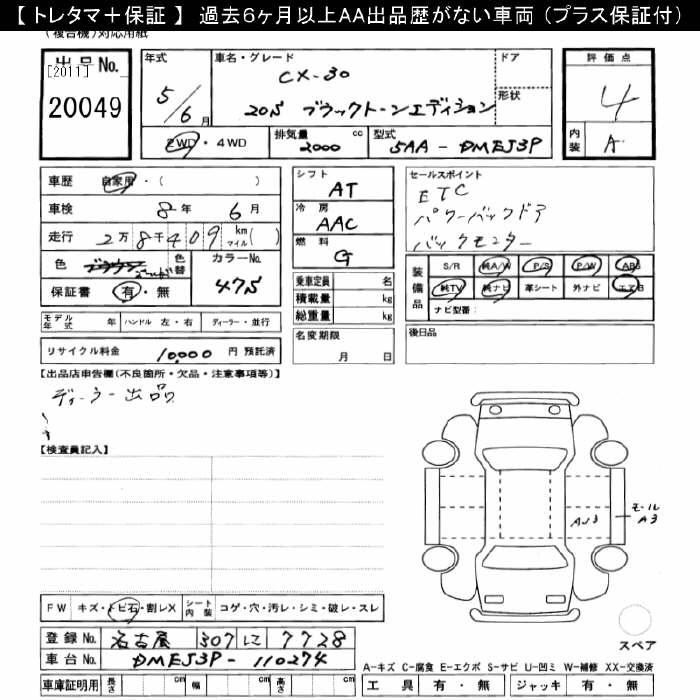 【 トレタマ＋保証 】 過去6ヶ月以上AA出品歴がない車両 (プラス保証付)
(複合機)対応用紙
出品No.
[2011]
20049
年式
5/6月
車名・グレード
CX-30
20S ブラックトーンエディション
ドア
形状
2WD・4WD
排気量 2000 cc
型式 5AA - DMEJ3P
評価点
4
内装 A
車歴 自家用・( )
車検 8年 6月
走行 2万8千409 km マイル( )
色 ブラウン
色替
カラーNo. 47S
保証書 有・無
モデル年式 年 ハンドル 左・右 ディーラー・並行
リサイクル料金 10,000 円 預託済
シフト AT
冷房 AAC
燃料 G
乗車定員 名
積載量 kg
総重量 kg
名変期限
月 日
セールスポイント
ETC
パワーバックドア
バックモニター
装備品
S/R 純A/W P/S P/W ABS
純TV 純ナビ 革シート 外ナビ エアB
ナビ型番：
後日品
【出品店申告欄(不良箇所・欠品・注意事項等)】
ディーラー出品
【検査員記入】
モール
A3
FW キズ・トビ石・割レX シート内装 コゲ・穴・汚レ・シミ・破レ・スレ
スペア
登録No. 名古屋 307 に 7728
車台No. DMEJ3P-110274
A-キズ C-腐食 E-エクボ S-サビ U-凹ミ W-補修 XX-交換済
車庫証明用 長さ cm 幅 cm 高さ cm
工具 有・無 ジャッキ 有・無